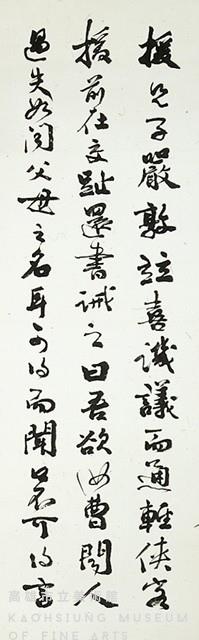 援兄子嚴敦並喜譏議而通輕俠客
援前在交趾還書誡之曰吾欲汝曹聞人
過失如聞父母之名耳可得而聞口不可得言
高雄市立美術館
KAOHSIUNG MUSEUM
OF FINE ARTS